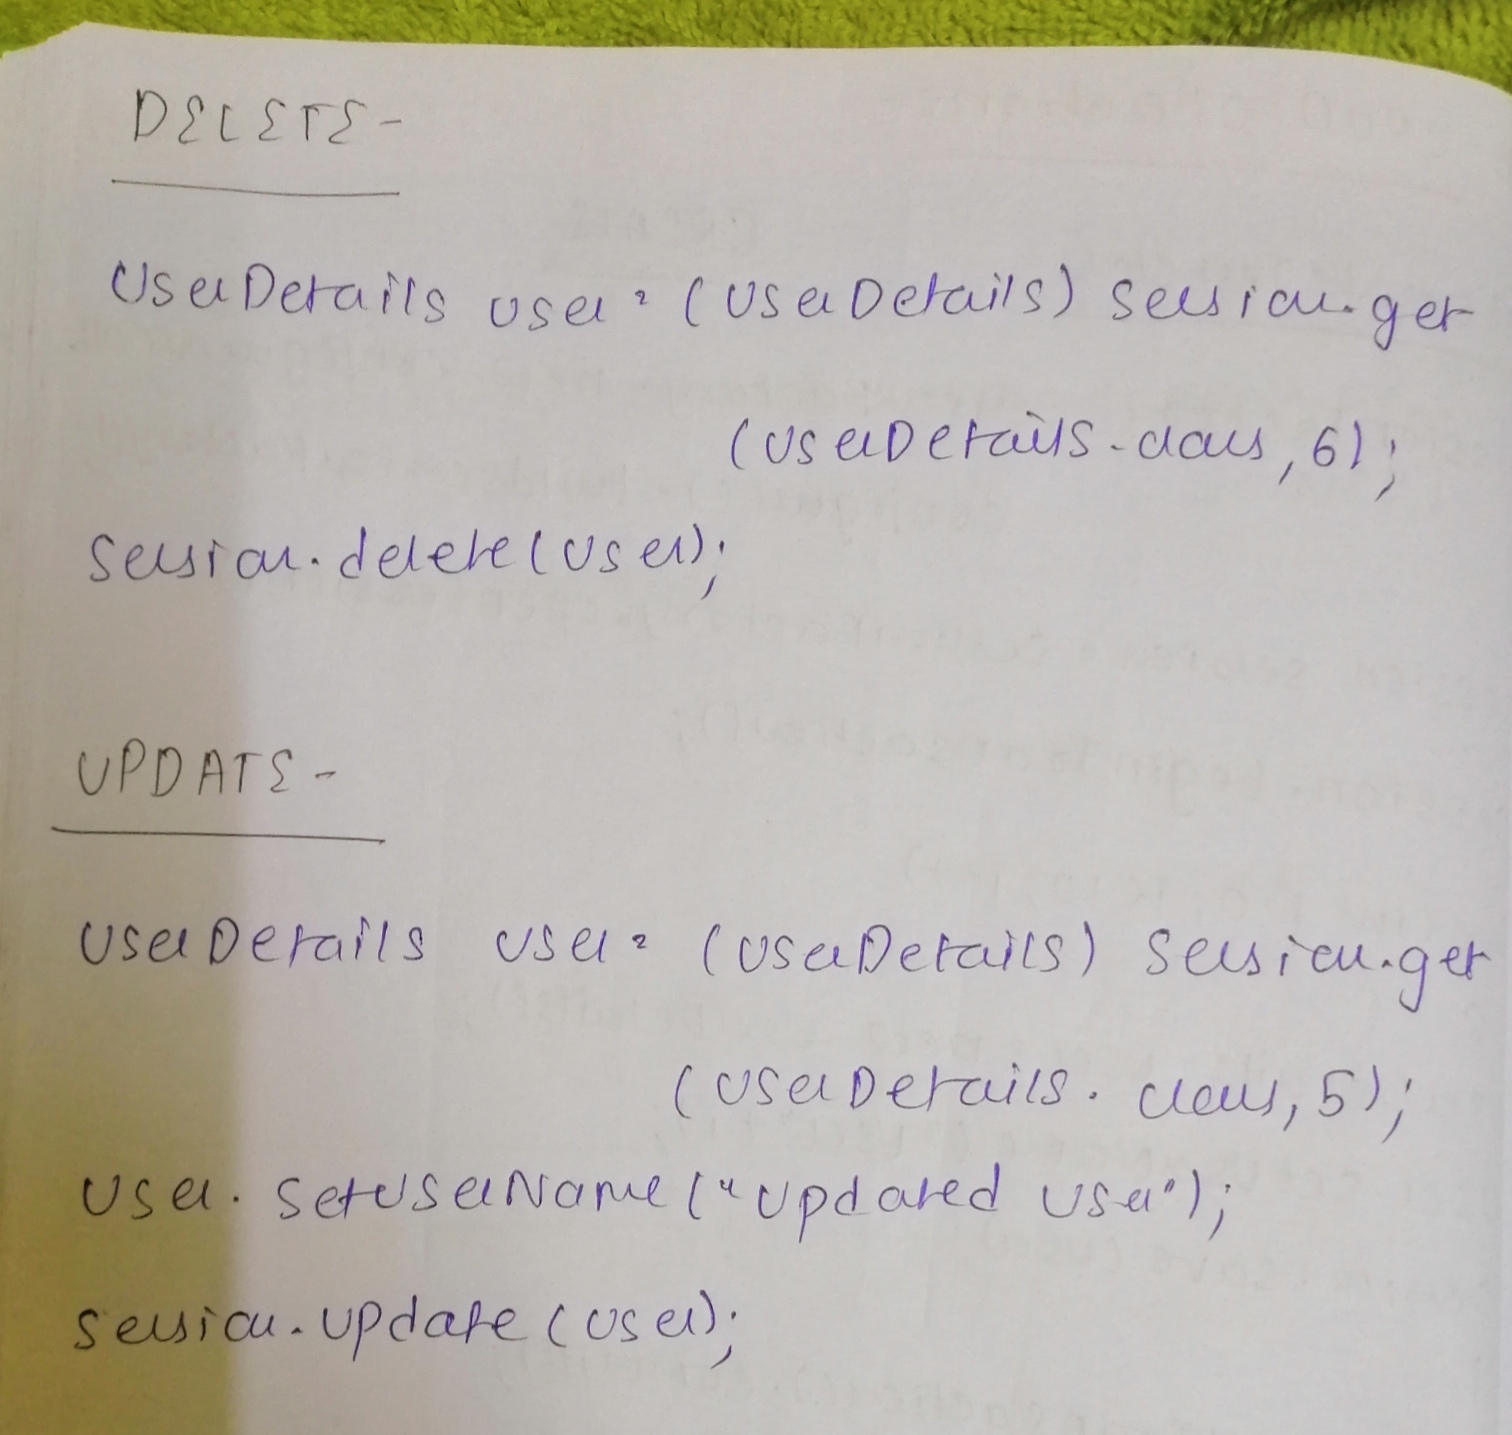 DELETE-
UserDetails user = (UserDetails) session.get
(UserDetails.class, 6);
session.delete(user);
UPDATE-
UserDetails user = (UserDetails) session.get
(UserDetails.class, 5);
user.setUserName("Updated User");
session.update(user);